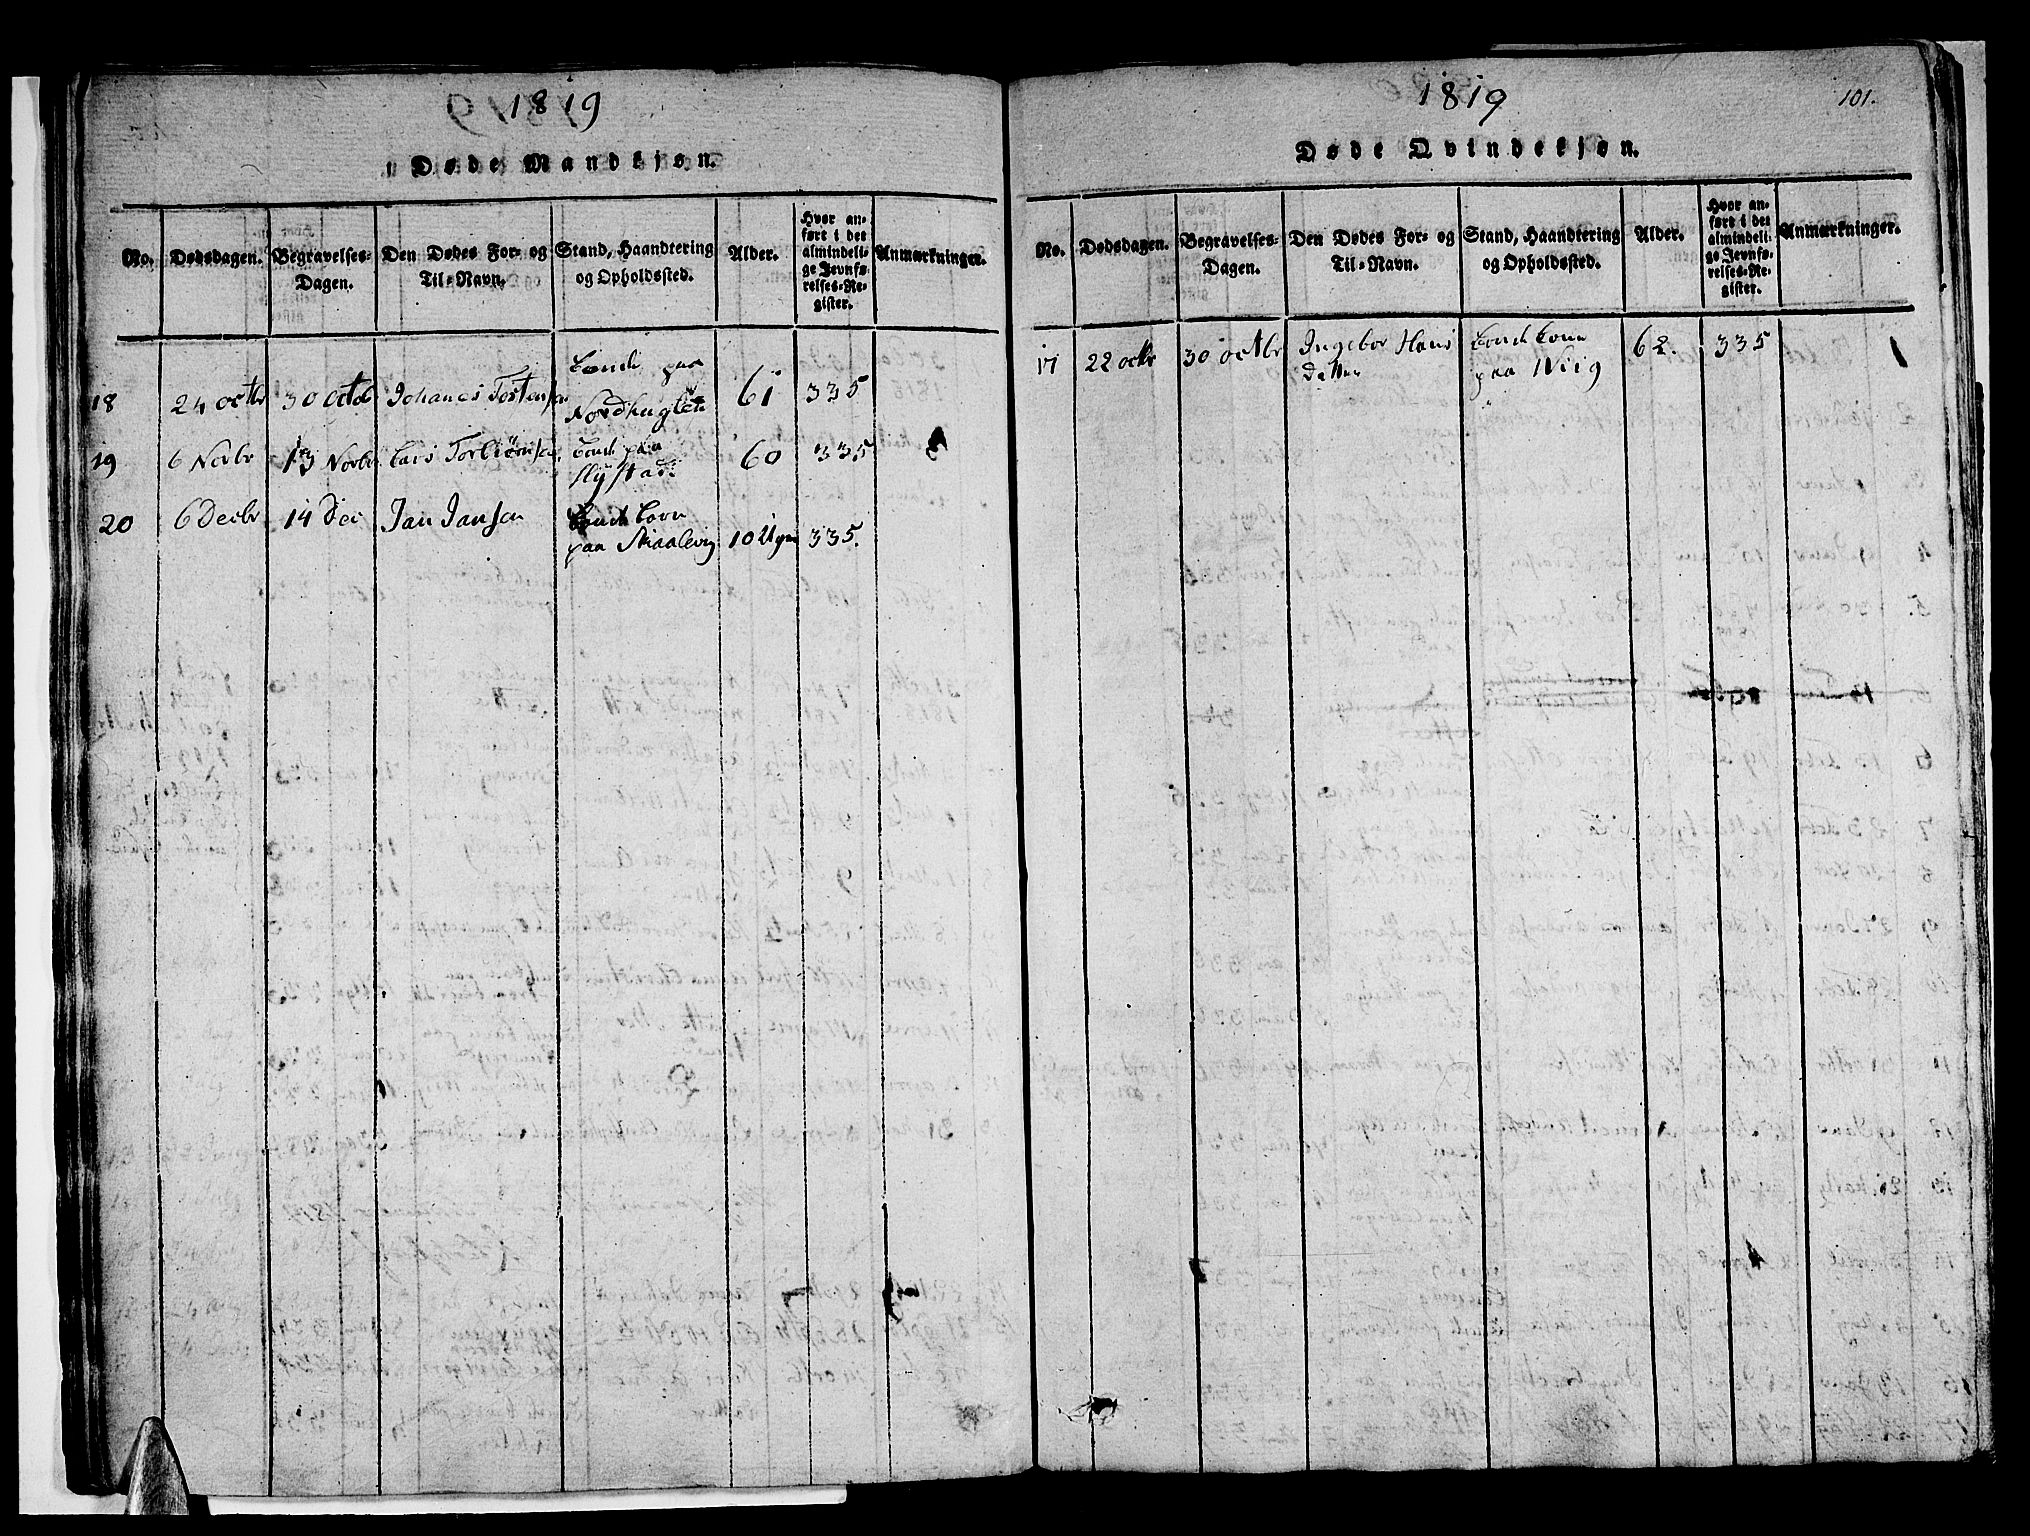 1819
Døde Mandkjøn.
No.
Dødsdagen.
Begravelses-
Dagen.
Den Dødes For- og
Til-Navn.
Stand, Haandtering
og Opholdssted.
Alder.
Hvor an-
ført i det
almindeli-
ge Jevnfø-
relses-Re-
gister.
Anmærkninger.
18
24 octbr
30 octob
Johanes Tostensen
bonde paa
Nordhuglen
61
335
19
6 Novbr
13 Novbr
Lars Torbiörnsen
bonde paa
60
335
20
6 Decbr
14 Dec
Jan Jansen
bonde barn
paa
10 Ugr
335.
1819
101.
Døde Qvindekjøn.
No.
Dødsdagen.
Begravelses-
Dagen.
Den Dødes For- og
Til-Navn.
Stand, Haandtering
og Opholdssted.
Alder.
Hvor an-
ført i det
almindeli-
ge Jevnfø-
relses-Re-
gister.
Anmærkninger.
17
22 octbr
30 octbr
Ingebor Hans
datter
bonde kone
paa Wiig
62.
335